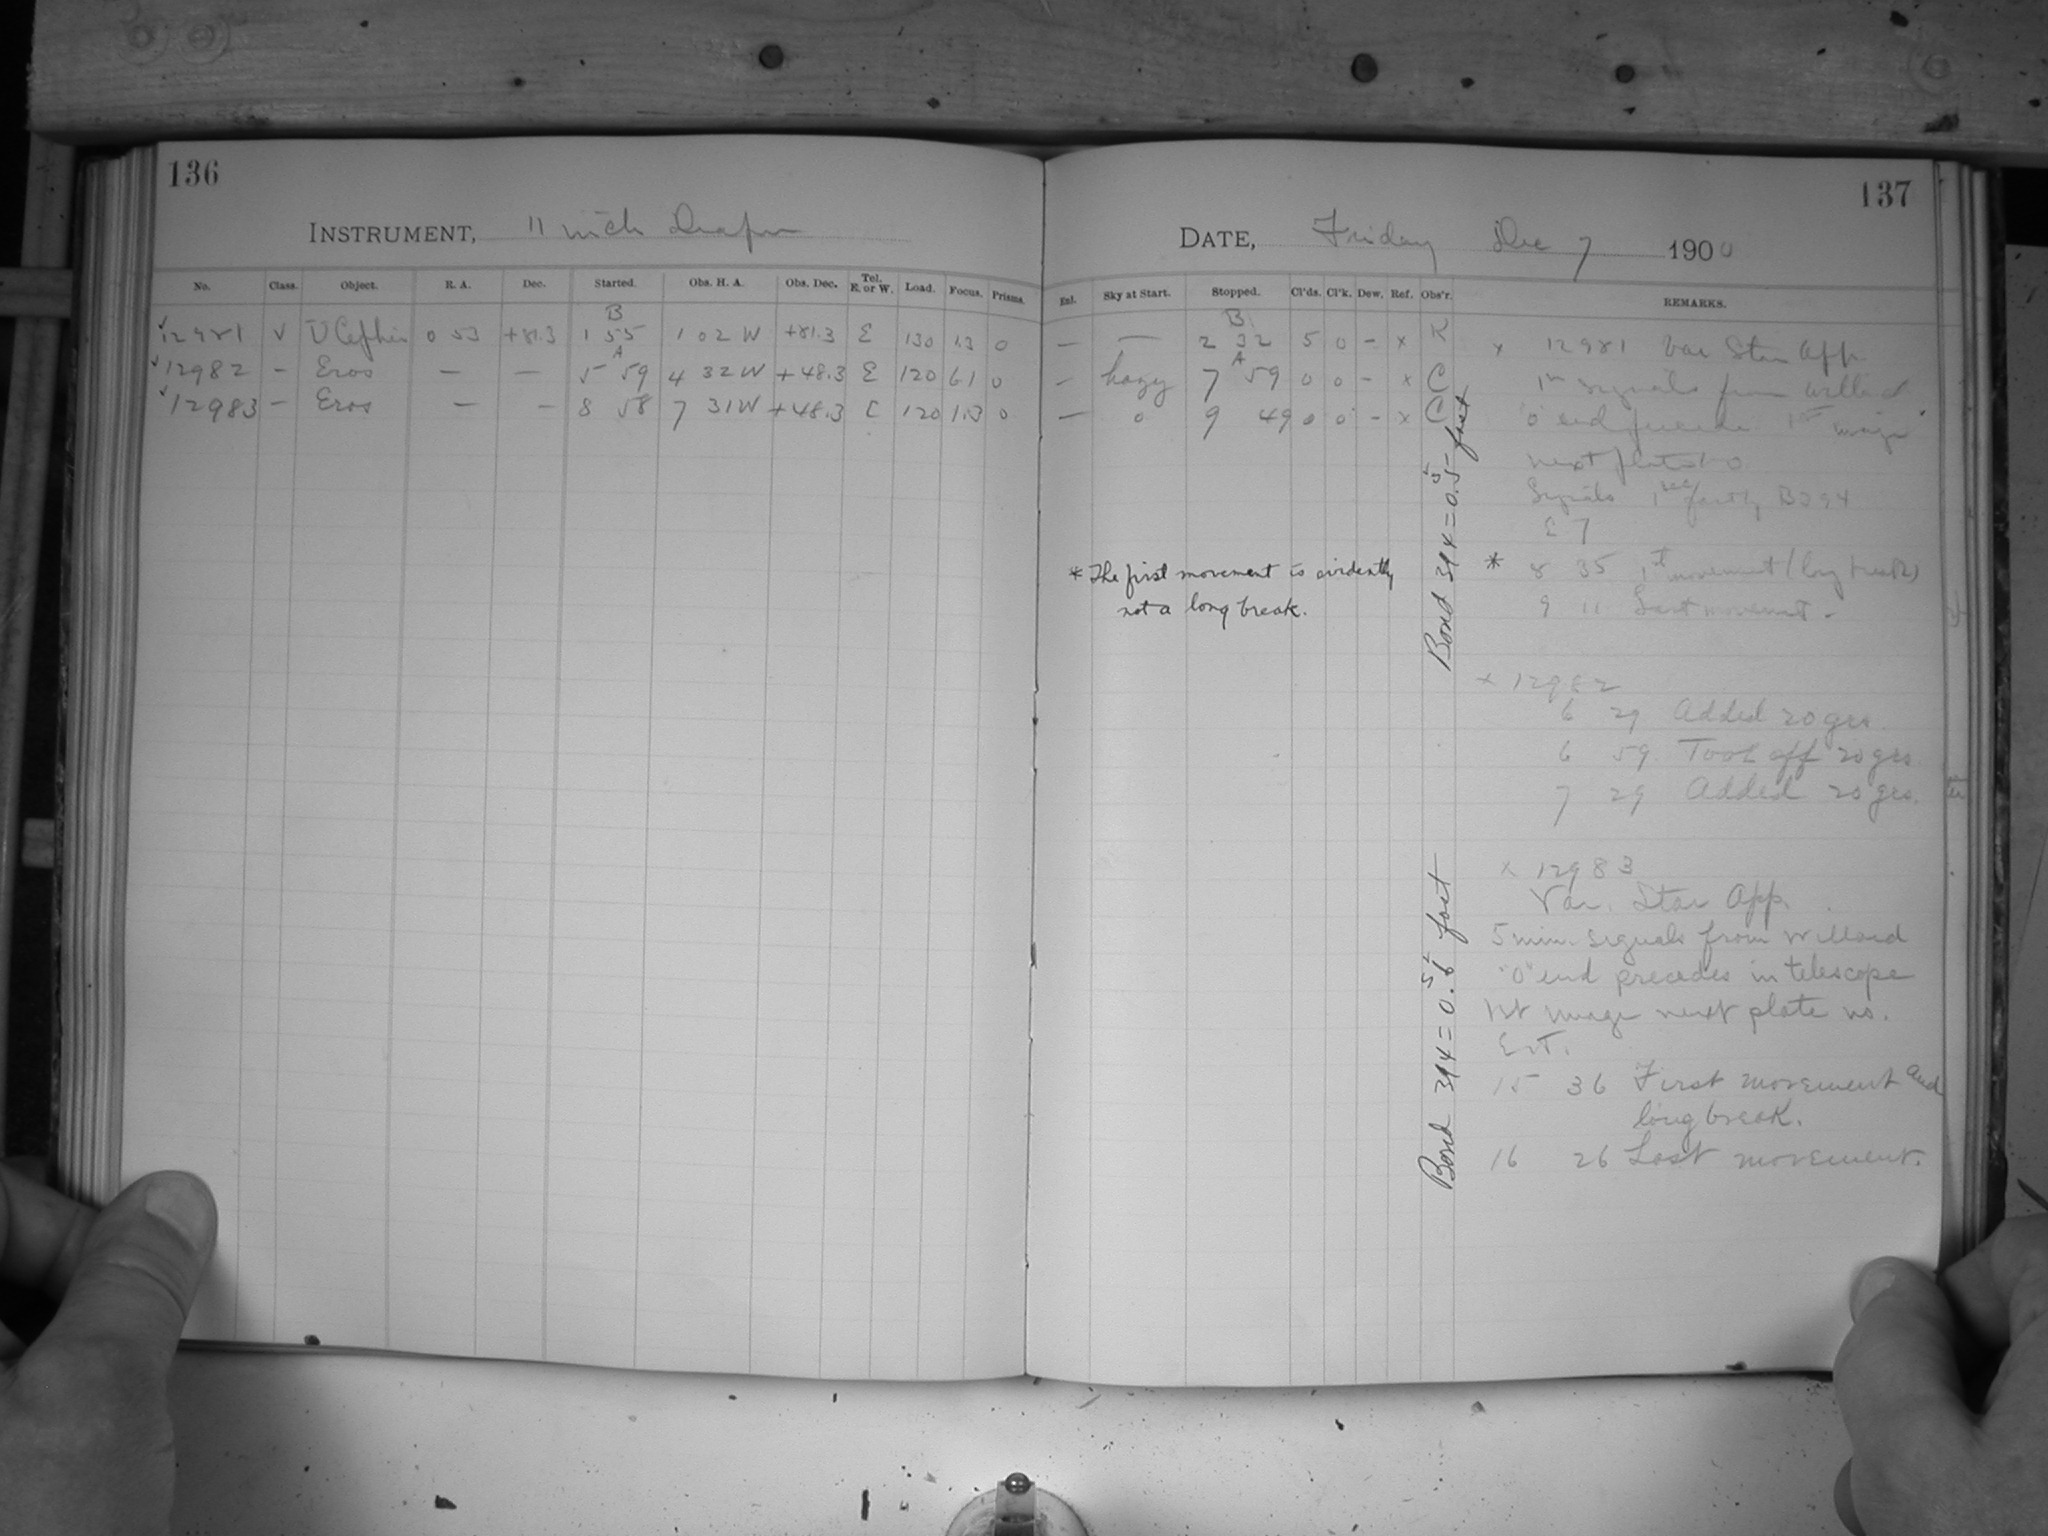 136
INSTRUMENT, 11 inch Draper
No. Class. Object. R. A. Dec. Started. Obs. H. A. Obs. Dec. Tel. E. or W. Load. Focus. Prisms.
B
12981 V U Cephei 0 53 +81.3 1 55 1 02 W +81.3 E 130 13 0
A
12982 - Eros — — 5 59 4 32 W +48.3 E 120 61 0
12983 - Eros — — 8 58 7 31 W +48.3 E 120 1.3 0
137
DATE, Friday Dec 7 1900
Enl. Sky at Start. Stopped. Cl'ds. Cl'k. Dew. Ref. Obs'r. REMARKS.
B
— — 2 32 5 0 - x K
A
- hazy 7 59 0 0 - x C
— 0 9 49 0 0 - x C
x 12981 Var Star App
1m signals from Willard
"0" end precedes 1st image
next plate no
Signals 1 sec fast by B394
E T
* 8 35 1st movement (long break)
9 11 Last movement -
* The first movement is evidently
not a long break.
Bond 394 = 0.s5 fast
x 12982
6 29 Added 20 grs.
6 59 Took off 20 grs
7 29 Added 20 grs.
x 12983
Var. Star App.
5 min. signals from Willard
"0" end precedes in telescope
1st image next plate no.
E.T.
15 36 First movement and
long break.
16 26 Last movement.
Bond 394 = 0.s6 fast